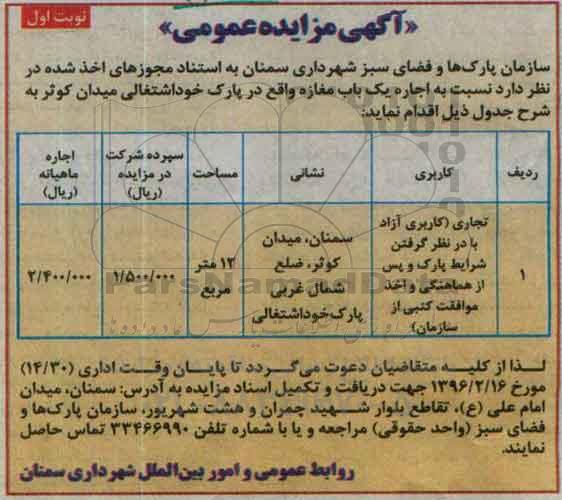 نوبت اول
«آگهی مزایده عمومی»
سازمان پارک‌ها و فضای سبز شهرداری سمنان به استناد مجوزهای اخذ شده در
نظر دارد نسبت به اجاره یک باب مغازه واقع در پارک خوداشتغالی میدان کوثر به
شرح جدول ذیل اقدام نماید:
ردیف
کاربری
نشانی
مساحت
سپرده شرکت
در مزایده
(ریال)
اجاره
ماهیانه
(ریال)
۱
تجاری (کاربری آزاد
با در نظر گرفتن
شرایط پارک و پس
از هماهنگی و اخذ
موافقت کتبی از
سازمان)
سمنان، میدان
کوثر، ضلع
شمال غربی
پارک خوداشتغالی
۱۲ متر
مربع
۱/۵۰۰/۰۰۰
۲/۴۰۰/۰۰۰
ParsNamadData
لذا از کلیه متقاضیان دعوت می‌گردد تا پایان وقت اداری (۱۴/۳۰)
مورخ ۱۳۹۶/۲/۱۶ جهت دریافت و تکمیل اسناد مزایده به آدرس: سمنان، میدان
امام علی (ع)، تقاطع بلوار شهید چمران و هشت شهریور، سازمان پارک‌ها و
فضای سبز (واحد حقوقی) مراجعه و یا با شماره تلفن ۳۳۴۶۶۹۹۰ تماس حاصل
نمایند.
روابط عمومی و امور بین‌الملل شهرداری سمنان